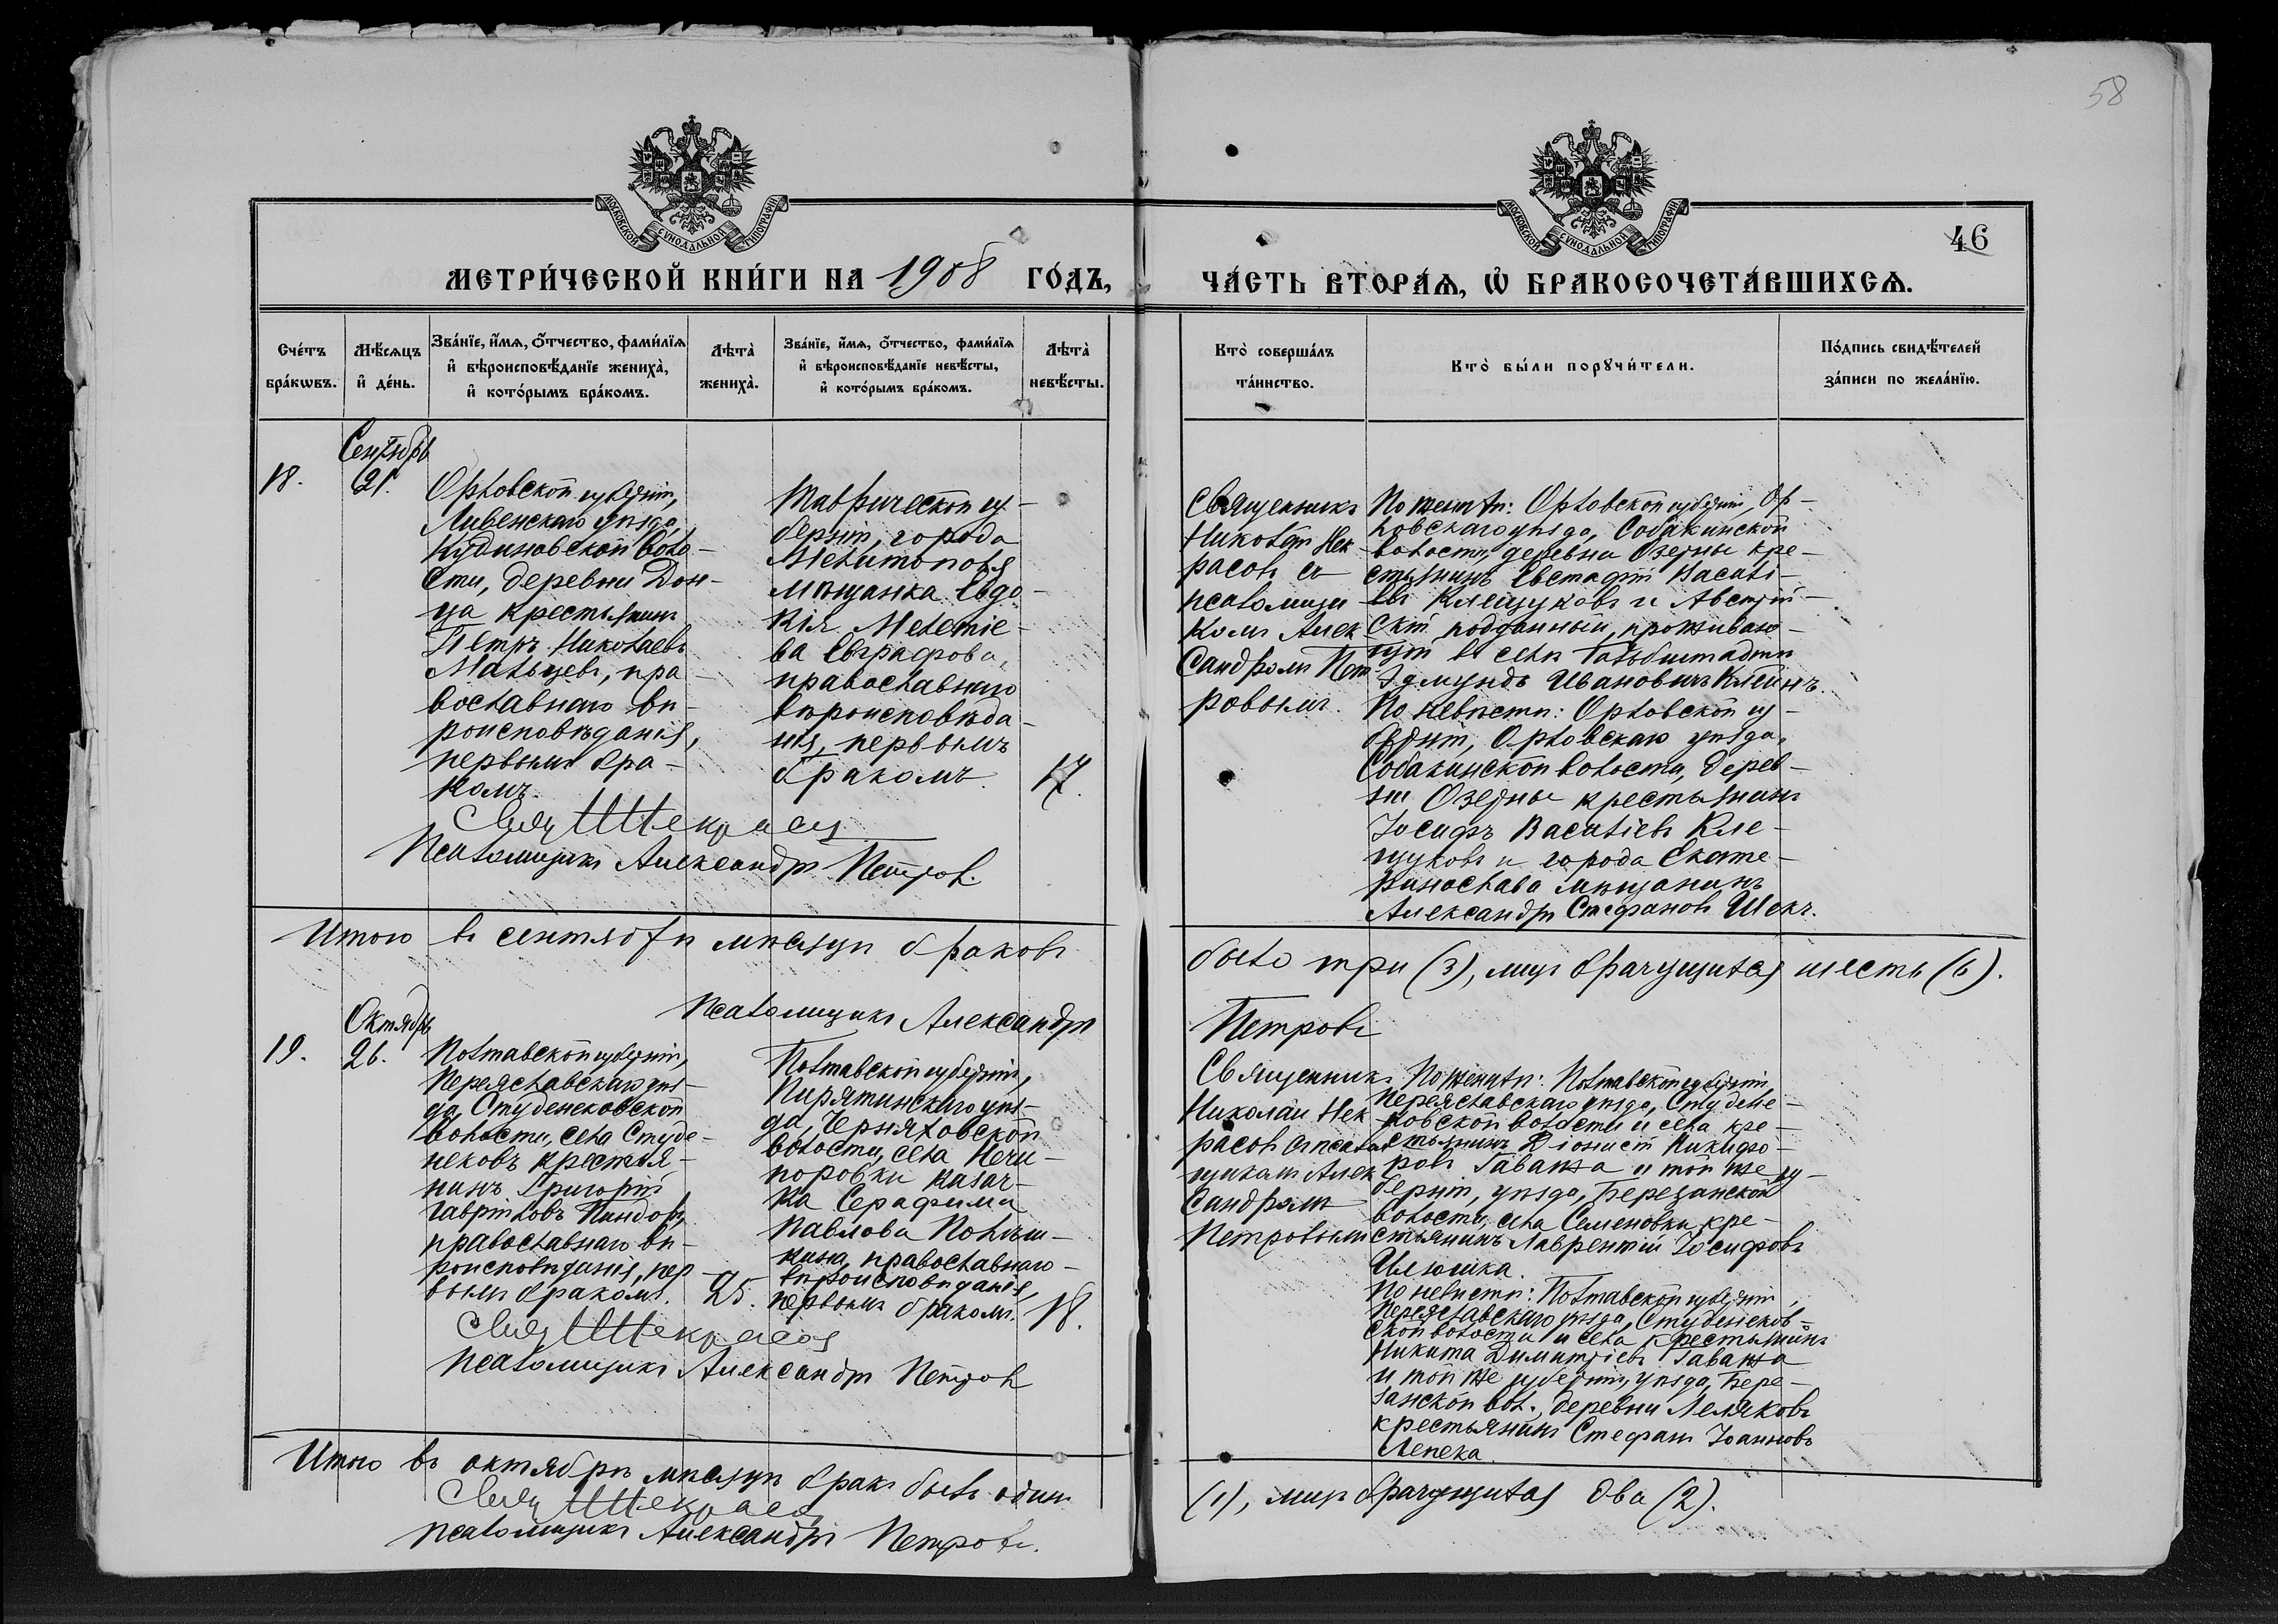 58
46
МОСКОВСКОЙ СѴНОДАЛЬНОЙ ТИПОГРАФІИ
МОСКОВСКОЙ СѴНОДАЛЬНОЙ ТИПОГРАФІИ
МЕТРИ́ЧЕСКОЙ КНИ́ГИ НА 1908 ГО́ДЪ,
ЧА́СТЬ ВТОРА́Ѧ, Ѽ БРАКОСОЧЕТА́ВШИХСѦ.
Сче́тъ бра́кѡвъ.
Мѣ́сѧцъ и҆ де́нь.
Зва́нїе, и҆́мѧ, ѻ҆́тчество, фами́лїѧ и҆ вѣроисповѣ́данїе жениха̀, и҆ кото́рымъ бра́комъ.
Лѣта̀ жениха̀.
Зва́нїе, и҆́мѧ, ѻ҆́тчество, фами́лїѧ и҆ вѣроисповѣ́данїе невѣ́сты, и҆ кото́рымъ бра́комъ.
Лѣта̀ невѣ́сты.
Кто̀ соверша́лъ та́инство.
Кто̀ бы́ли порꙋчи́тели.
По́дпись свидѣ́телей за́писи по жела́нїю.
Сентябрь
18.
21.
Орловской губерніи,
Ливенскаго уѣзда,
Кудиновской воло-
сти, деревни Дон-
ца крестьянинъ
Петръ Николаевъ
Мальцевъ, пра-
вославнаго вѣ-
роисповѣданія,
первымъ бра-
комъ.
Таврической гу-
берніи, города
Мелитополя
мѣщанка Евдо-
кія Мелетіе-
ва Евграфова,
православнаго
вѣроисповѣда-
нія, первымъ
бракомъ.
17.
Священникъ
Николай Нек-
расовъ съ
псаломщи-
комъ Алек-
сандромъ Пет-
ровымъ.
По женихѣ: Орловской губерніи, Ор-
ловскаго уѣзда, Собакинской
волости, деревни Озерны кре-
стьянинъ Евстафій Василі-
евъ Клещуковъ и Австрій-
скій подданный, проживаю-
щій въ селѣ Гальбштадтѣ
Эдмундъ Ивановичъ Клейнъ.
По невѣстѣ: Орловской гу-
берніи, Орловскаго уѣзда,
Собакинской волости, дерев-
ни Озерны крестьянинъ
Іосифъ Василіевъ Кле-
щуковъ и города Екате-
ринослава мѣщанинъ
Александръ Стефановъ Шекъ.
Псаломщикъ Александръ Петровъ.
Итого въ сентябрѣ мѣсяцѣ браковъ
было три (3), лицъ брачущихся шесть (6).
Псаломщикъ Александръ
Петровъ
Октябрь
19.
26.
Полтавской губерніи,
Переяславскаго уѣз-
да, Студениковской
волости, села Студе-
никовъ крестья-
нинъ Григорій
Гавріиловъ
православнаго вѣ-
роисповѣданія, пер-
вымъ бракомъ.
25.
Полтавской губерніи,
Пирятинскаго уѣз-
да, Черняховской
волости, села Нечи-
поровки казач-
ка Серафима
Павлова
православнаго
вѣроисповѣданія,
первымъ бракомъ.
18.
Священникъ
Николай Нек-
расовъ съ псалом-
щикомъ Алек-
сандромъ
Петровымъ
По женихѣ: Полтавской губерніи,
Переяславскаго уѣзда, Студени-
ковской волости и села кре-
стьянинъ Діонисій Никифо-
ровъ Гаважа и той же гу-
берніи, уѣзда, Березанской
волости, села Семеновки кре-
стьянинъ Лаврентій Іосифовъ
Илюшка.
По невѣстѣ: Полтавской губерніи,
Переяславскаго уѣзда, Студеников-
ской волости и села крестьянинъ
Никита Димитріевъ Гаважа
и той же губерніи, уѣзда, Бере-
занской вол., деревни Леляковъ
крестьянинъ Стефанъ Іоанновъ
Лепеха.
Псаломщикъ Александръ Петровъ
Итого въ октябрѣ мѣсяцѣ бракъ былъ одинъ
(1), лицъ брачущихся два (2).
Псаломщикъ Александръ Петровъ.